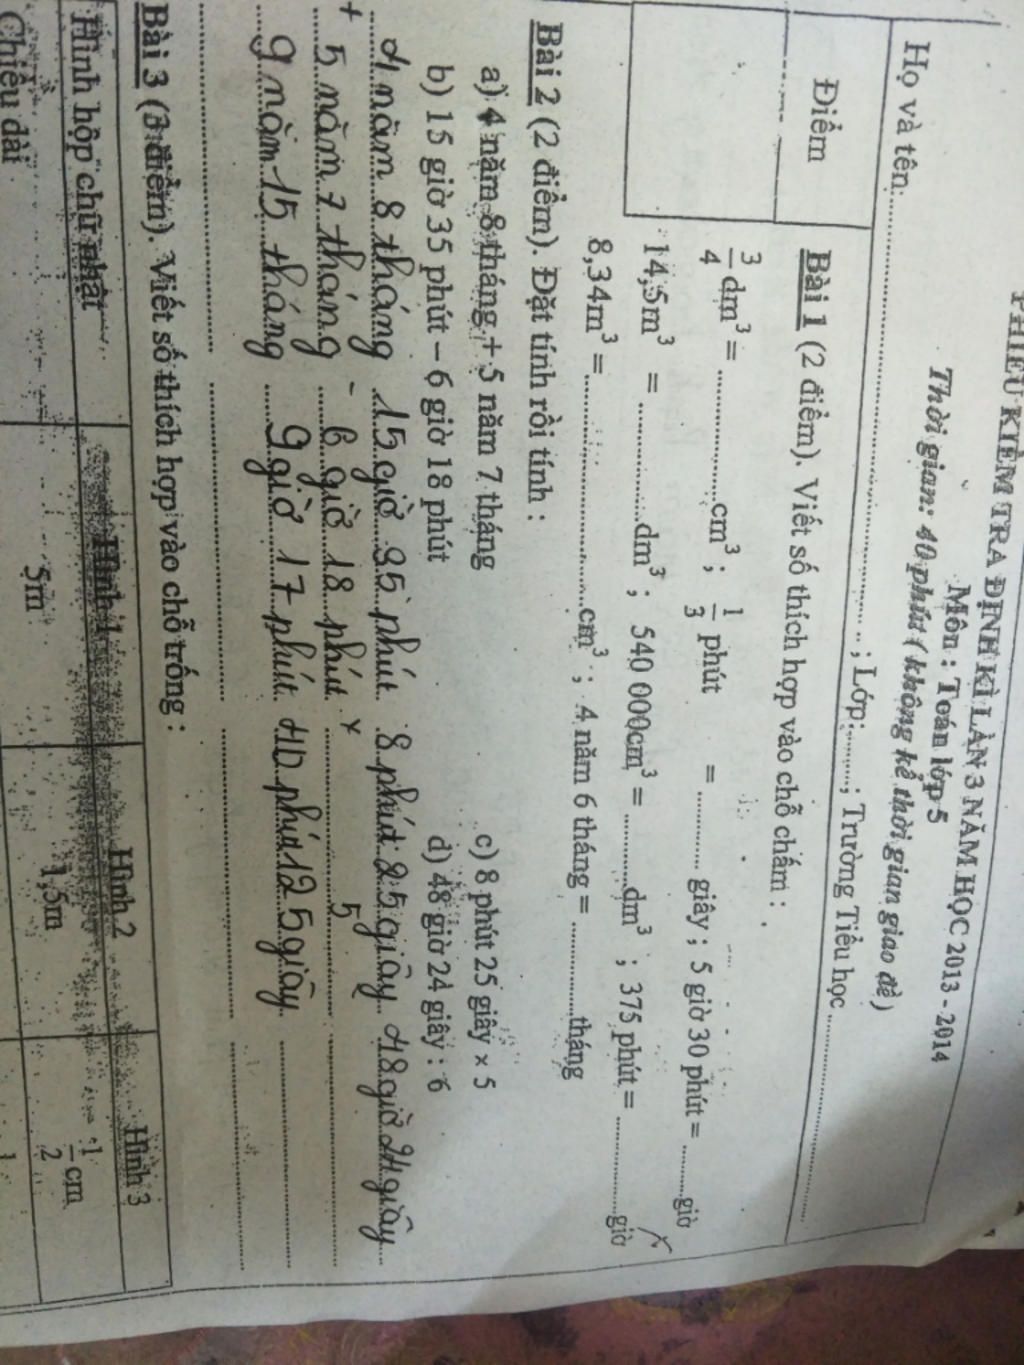 PHIẾU KIỂM TRA ĐỊNH KÌ LẦN 3 NĂM HỌC 2013 - 2014
Môn : Toán lớp 5
Thời gian: 40 phút ( không kể thời gian giao đề )
Họ và tên:..............................; Lớp:.......; Trường Tiểu học ....................
Điểm
Bài 1 (2 điểm). Viết số thích hợp vào chỗ chấm :
3/4 dm³ = ..............cm³ ; 1/3 phút = .......... giây ; 5 giờ 30 phút = .........giờ
14,5m³ = ..............dm³ ; 540 000cm³ = .........dm³ ; 375 phút = ..............giờ
8,34m³ = ..............cm³ ; 4 năm 6 tháng = ............tháng
Bài 2 (2 điểm). Đặt tính rồi tính :
a) 4 năm 8 tháng + 5 năm 7 tháng c) 8 phút 25 giây × 5
b) 15 giờ 35 phút – 6 giờ 18 phút d) 48 giờ 24 giây : 6
4 năm 8 tháng 15 giờ 35 phút 8 phút 25 giây 48 giờ 24 giây
+ 5 năm 7 tháng - 6 giờ 18 phút × 5
9 năm 15 tháng 9 giờ 17 phút 40 phút 125 giây
Bài 3 (3 điểm). Viết số thích hợp vào chỗ trống :
Hình hộp chữ nhật Hình 1 Hình 2 Hình 3
Chiều dài 5m 1,5m 1/2 cm